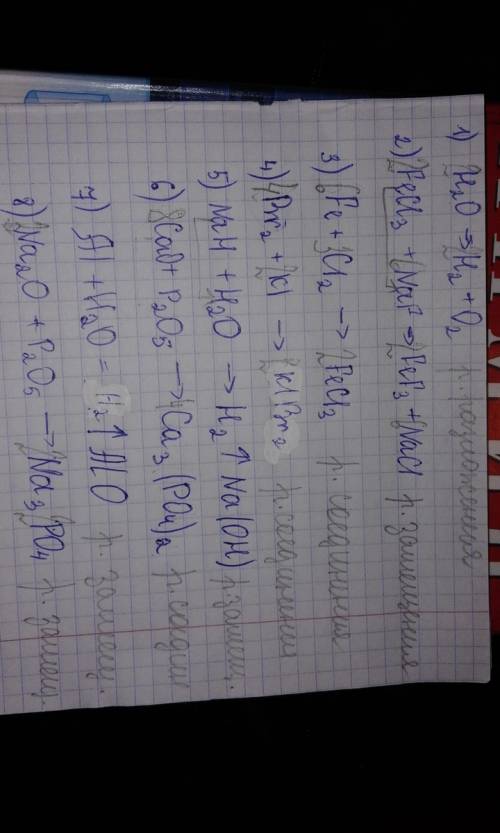 1) 2H₂O ⇒ 2H₂ + O₂ р. разложения
2) 2FeCl₃ + 6NaF ⇒ 2FeF₃ + 6NaCl р. замещения
3) 6Fe + 3Cl₂ → 2FeCl₃ р. соединения
4) 4Br₂ + 2KI → 2KI Br₂ р. соединения
5) NaH + H₂O → H₂↑ Na(OH) р. замещ.
6) CaO + P₂O₅ → Ca₃(PO₄)₂ р. соедин
7) Al + H₂O = H₂↑ AlO р. замещ.
8) Na₂O + P₂O₅ → Na₃PO₄ р. замещ.